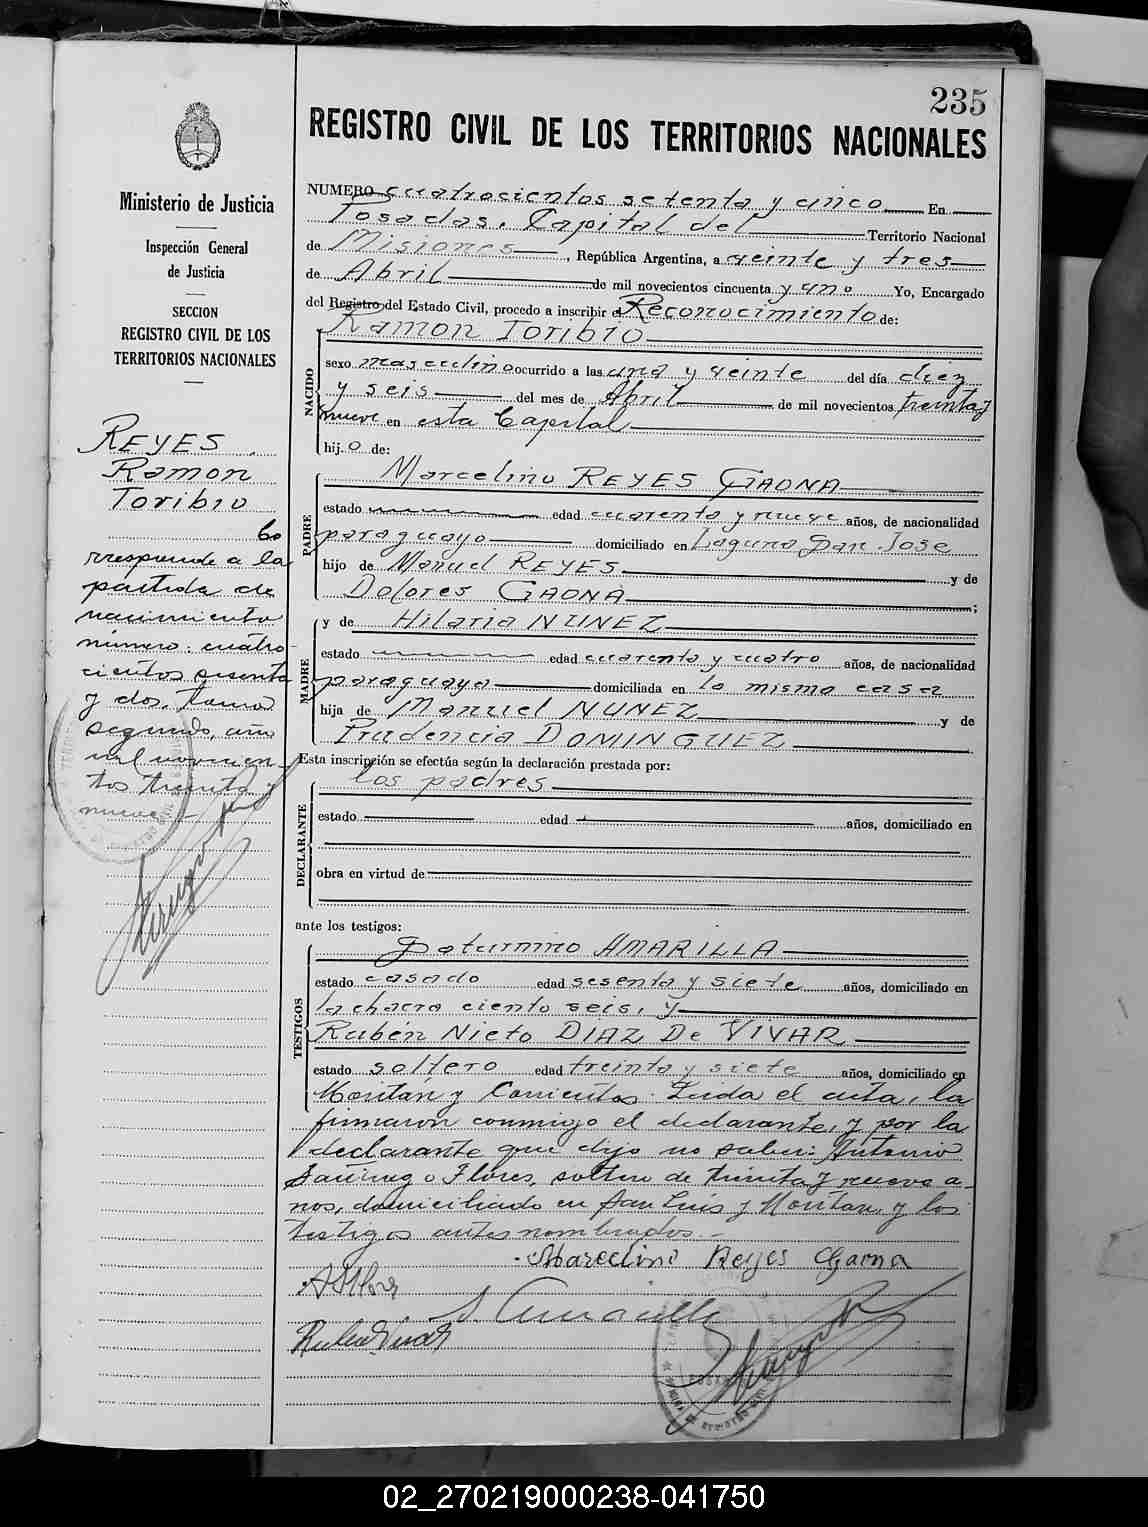 235
REGISTRO CIVIL DE LOS TERRITORIOS NACIONALES
Ministerio de Justicia
Inspección General
de Justicia
SECCION
REGISTRO CIVIL DE LOS
TERRITORIOS NACIONALES
REYES
Ramon
Toribio
Co
rresponde a la
partida de
nacimiento
número: cuatro
cientos sesenta
y dos, tomo
segundo, año
mil novecien
tos treinta y
nueve
NUMERO cuatrocientos setenta y cinco En
Posadas, Capital del Territorio Nacional
de Misiones, República Argentina, a veinte y tres
de Abril de mil novecientos cincuenta y uno Yo, Encargado
del Registro del Estado Civil, procedo a inscribir el Reconocimiento de:
NACIDO
Ramon Toribio
sexo masculino ocurrido a las una y veinte del día diez
y seis del mes de Abril de mil novecientos treinta y
nueve en esta Capital
hijo de:
PADRE
Marcelino REYES GAONA
estado edad cuarenta y nueve años, de nacionalidad
paraguayo domiciliado en Laguna San José
hijo de Manuel REYES y de
Dolores GAONA;
MADRE
y de Hilaria NUNEZ
estado edad cuarenta y cuatro años, de nacionalidad
paraguaya domiciliada en la misma casa
hija de Manuel NUNEZ y de
Prudencia DOMINGUEZ
Esta inscripción se efectúa según la declaración prestada por:
DECLARANTE
los padres
estado edad años, domiciliado en
obra en virtud de
ante los testigos:
TESTIGOS
Saturnino AMARILLA
estado casado edad sesenta y siete años, domiciliado en
la chacra ciento seis, y
Rubén Nieto DIAZ De VIVAR
estado soltero edad treinta y siete años, domiciliado en
Moritán y Corrientes. Leida el acta, la
firmaron conmigo el declarante, y por la
declarante que dijo no saber: Antonio
Flores, soltero de treinta y nueve a-
nos, domiciliado en San Luis y Moritan, y los
testigos antes nombrados.-
Marcelino Reyes Gaona
02_270219000238-041750